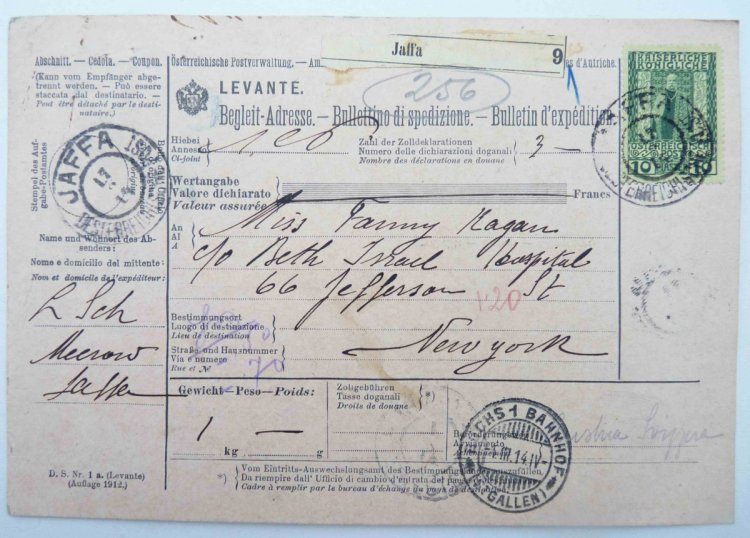 Abschnitt. — Cedola. — Coupon.
(Kann vom Empfänger abge-
trennt werden. — Può essere
staccata dal destinatario. —
Peut être détaché par le desti-
nataire.)
Stempel des Auf-
gabe-Postamtes
JAFFA
Name und Wohnort des Ab-
senders:
Nome e domicilio del mittente:
Nom et domicile de l'expéditeur:
L Sch
Meerow
Jaffa
D. S. Nr. 1 a. (Levante)
(Auflage 1912.)
Österreichische Postverwaltung. — Am
es d'Autriche.
Jaffa 9
256
LEVANTE.
Begleit-Adresse. — Bullettino di spedizione. — Bulletin d'expédition
Hiebei
Annesso
Ci-joint
Zahl der Zolldeklarationen
Numero delle dichiarazioni doganali
Nombre des déclarations en douane
3 —
Wertangabe
Valore dichiarato
Valeur assurée
Francs
An
Al
A
Miss Fanny Kagan
c/o Beth Israel Hospital
66 Jefferson St
120
Bestimmungsort
Luogo di destinazione
Lieu de destination
Straße und Hausnummer
Via e numero
Rue et №
70
New York
Gewicht—Peso—Poids:
1 —
kg g
Zollgebühren
Tasse doganali
Droits de douane
*)
*) Vom Eintritts-Auswechslungsamt des Bestimmungslandes auszufüllen.
Da riempire dall' Ufficio di cambio d'entrata del paese
Cadre à remplir par le bureau d'échange du pays de
KAISERLICHE
KÖNIGLICHE
ÖSTERREICHISCHE
10 10
JAFFA
BUCHS 1 BAHNHOF
(ST. GALLEN)
Austria Svizzera